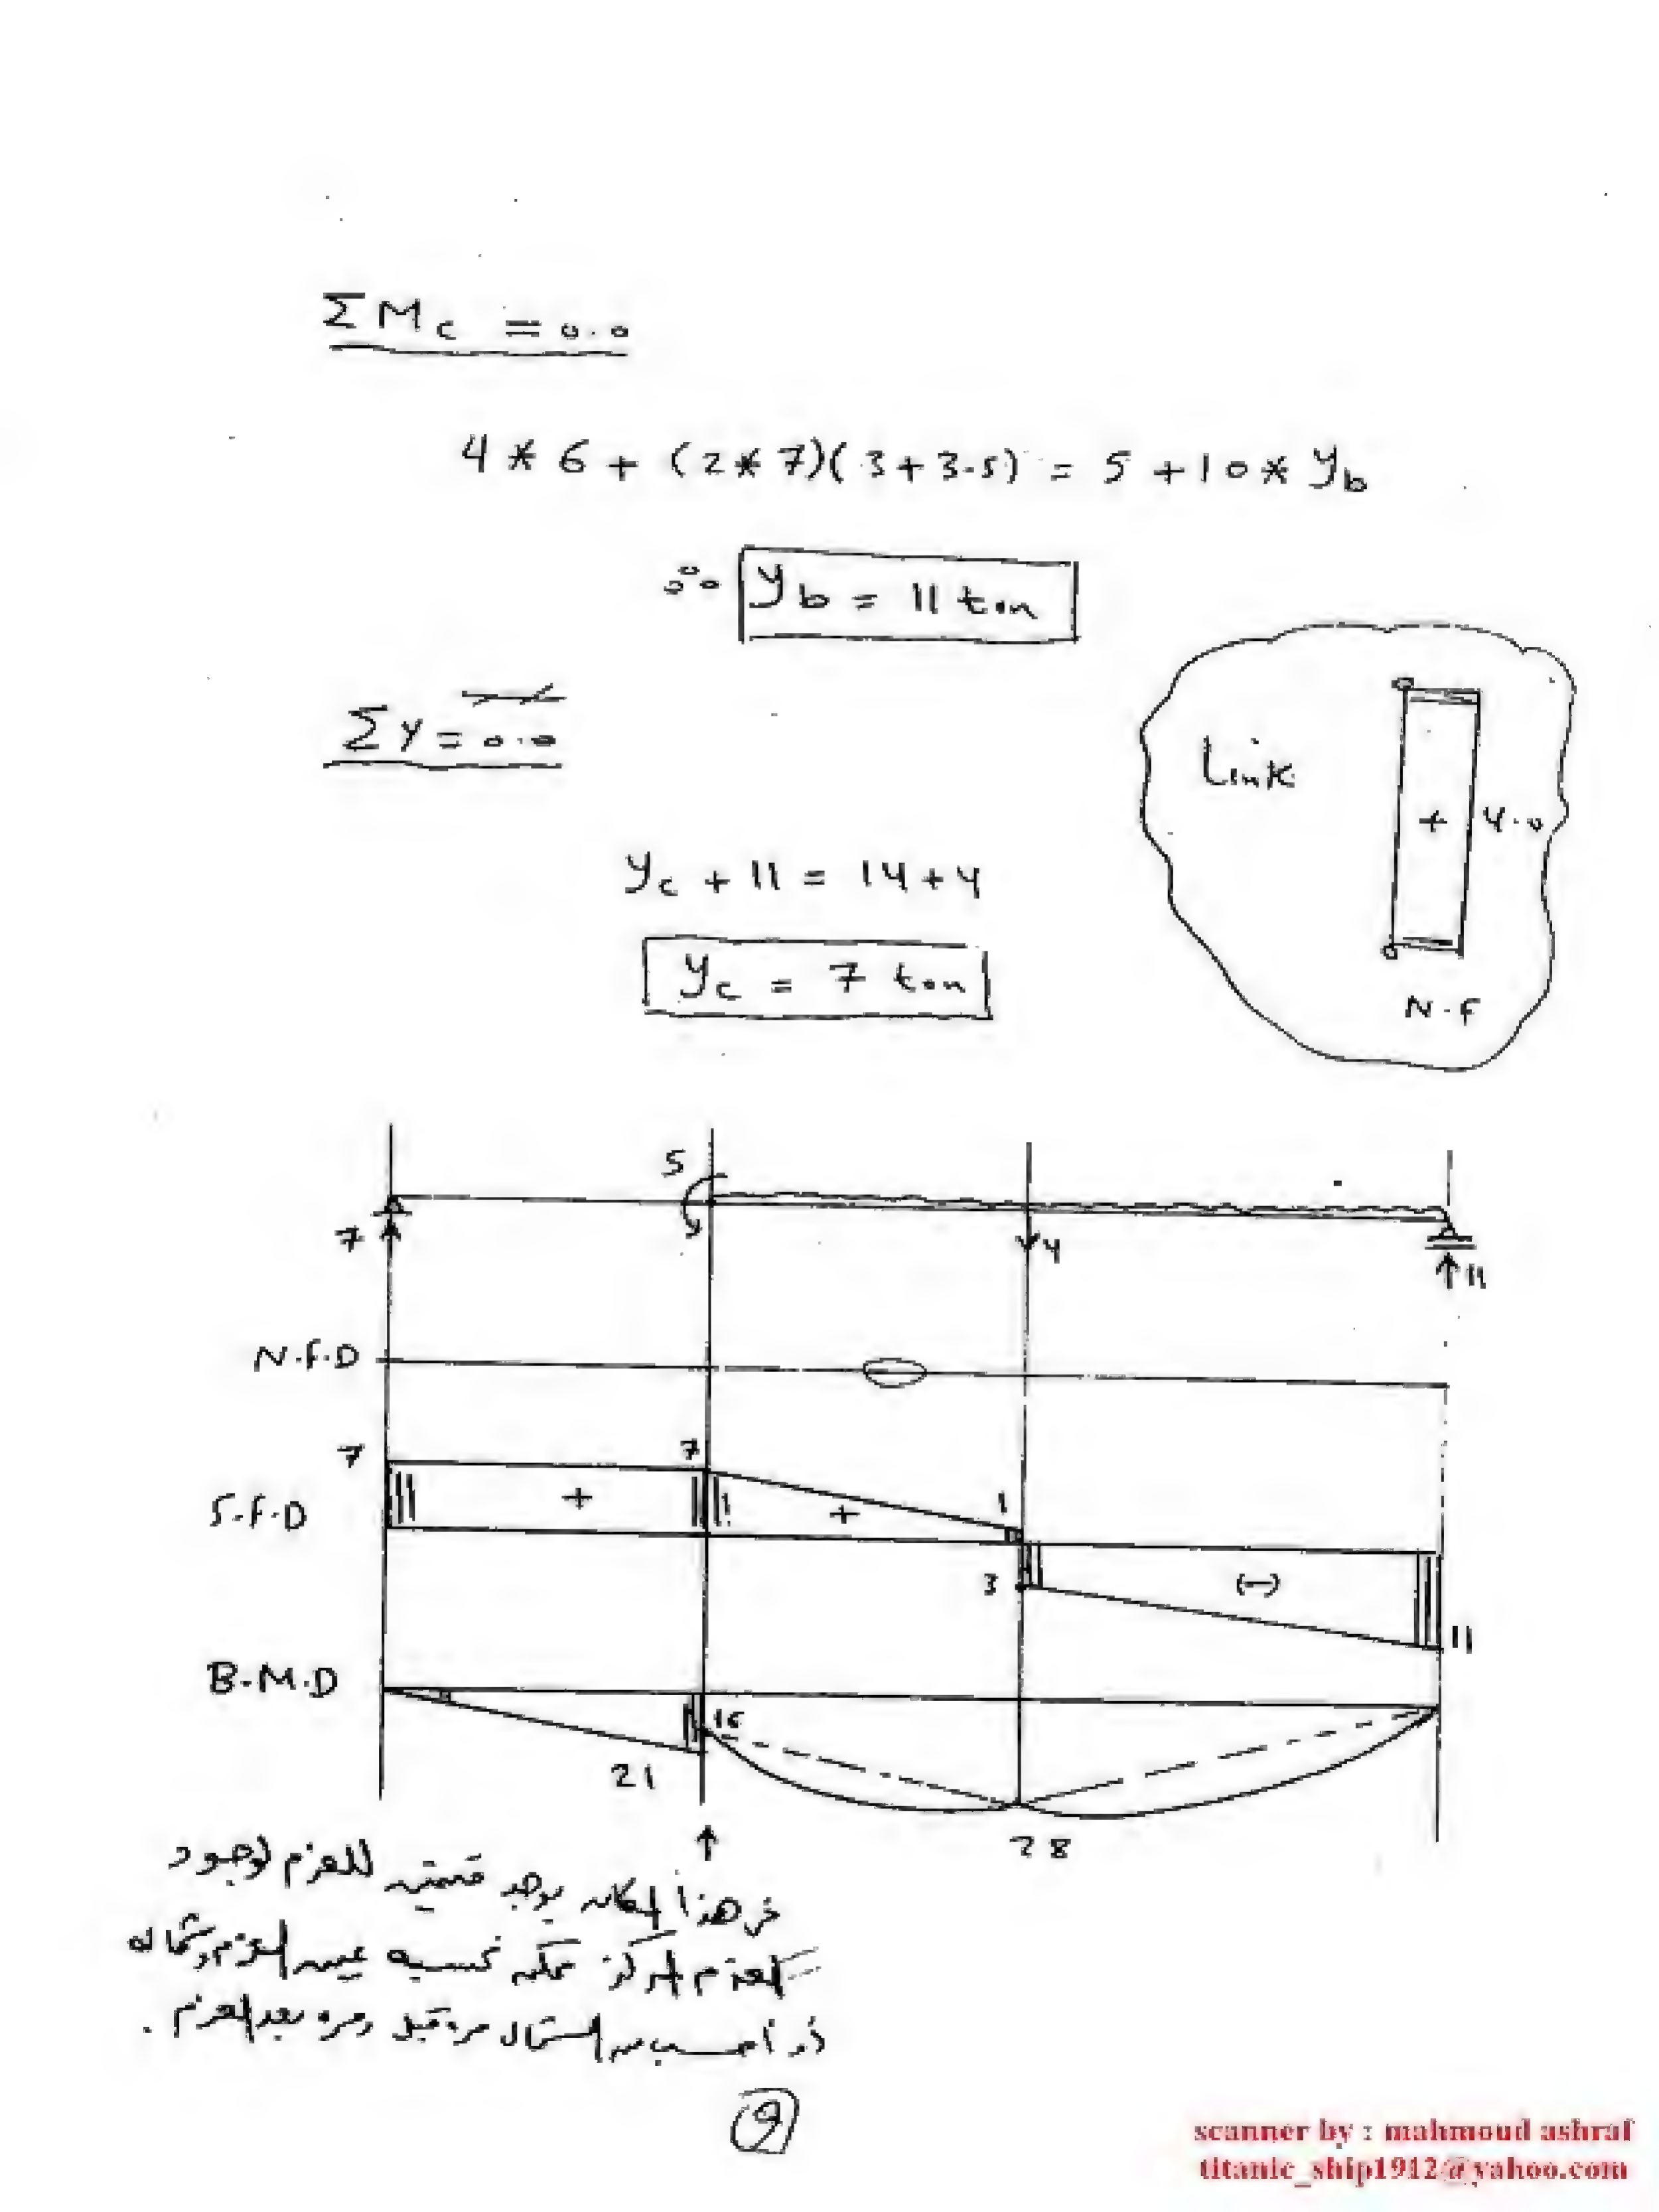 ΣMc = 0.0
4 * 6 + (2 * 7)(3 + 3.5) = 5 + 10 * yb
∴ yb = 11 ton
ΣY = 0.0
Link
+ 4.0
N.F
yc + 11 = 14 + 4
yc = 7 ton
5
7
4
11
N.F.D
7 7 1
S.F.D + +
3 (-)
11
B.M.D
16
21
28
في هذا المكان يوجد قيمتين للعزم لوجود
العزم المركز يمكن تحسبه يمين العزم وشماله
أو أحسب من الشمال مره قبل ومره بعد العزم .
9
scanner by : mahmoud ashraf
titanic_ship1912@yahoo.com